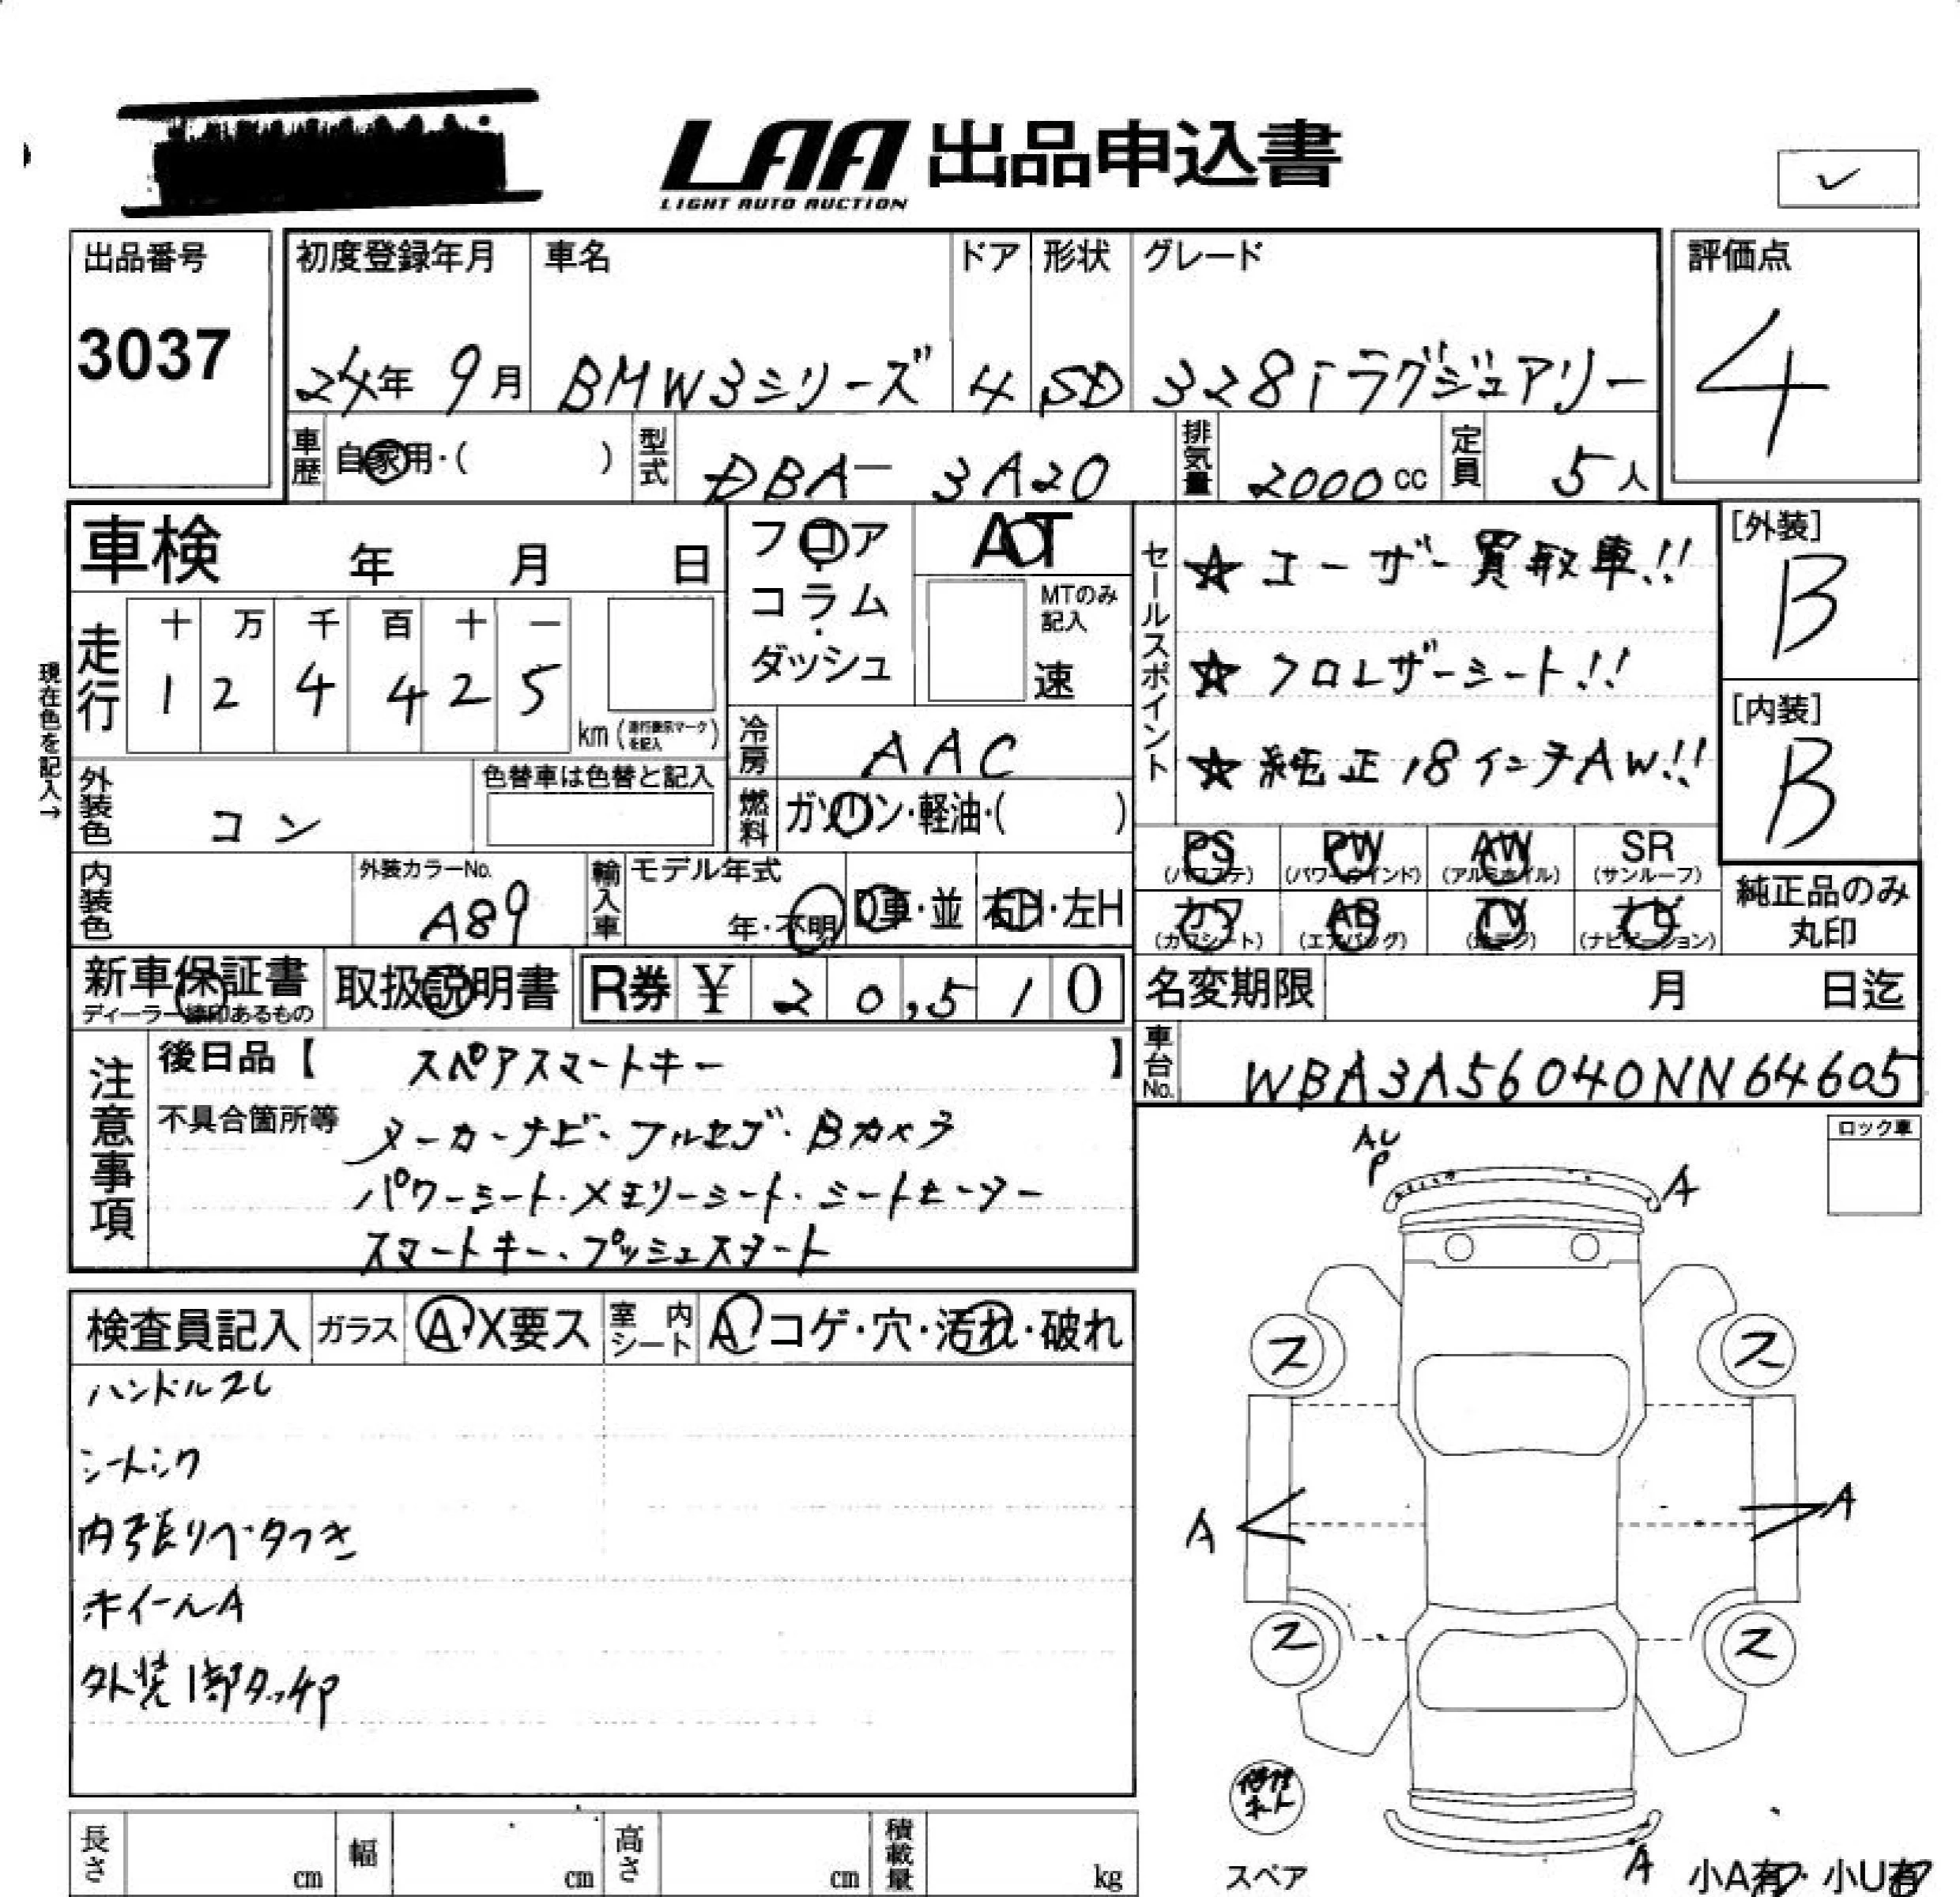 LAA 出品申込書
LIGHT AUTO AUCTION
✓
出品番号
3037
初度登録年月
24年 9月
車名
BMW3シリーズ
ドア
4
形状
SD
グレード
328iラグジュアリー
評価点
4
車歴 自家用・( )
型式 DBA-3A20
排気量 2000 cc
定員 5人
車検 年 月 日
フロア・コラム・ダッシュ
AT
MTのみ記入
速
セールスポイント
☆ユーザー買取車!!
☆クロレザーシート!!
☆純正18インチAW!!
[外装]
B
[内装]
B
現在色を記入→
走行
十 万 千 百 十 一
1 2 4 4 2 5
km (走行表示マークを記入)
冷房 AAC
外装色 コン
色替車は色替と記入
燃料 ガソリン・軽油・( )
PS (パワステ)
PW (パワーウインド)
AW (アルミホイル)
SR (サンルーフ)
カワ (カワシート)
AB (エアバッグ)
TV (地デジ)
ナビ (ナビゲーション)
純正品のみ丸印
内装色
外装カラーNo.
A89
輸入車
モデル年式
年・不明
D車・並
右H・左H
新車保証書
ディーラー捺印あるもの
取扱説明書
R券 ¥ 20,510
名変期限 月 日迄
車台No. WBA3A56040NN64605
注意事項
後日品【 スペアスマートキー 】
不具合箇所等 メーカーナビ・フルセグ・Bカメラ
パワーシート・メモリーシート・シートヒーター
スマートキー・プッシュスタート
ロック車
AU
P
A
検査員記入
ガラス A・X要ス
室内シート A・コゲ・穴・汚れ・破れ
ハンドルスレ
シートシワ
内張りベタつき
ホイールA
外装1部タッチP
ス ス
A A
ス ス
修理キット
スペア
A
小A有 ・小U有
長さ cm
幅 cm
高さ cm
積載量 kg